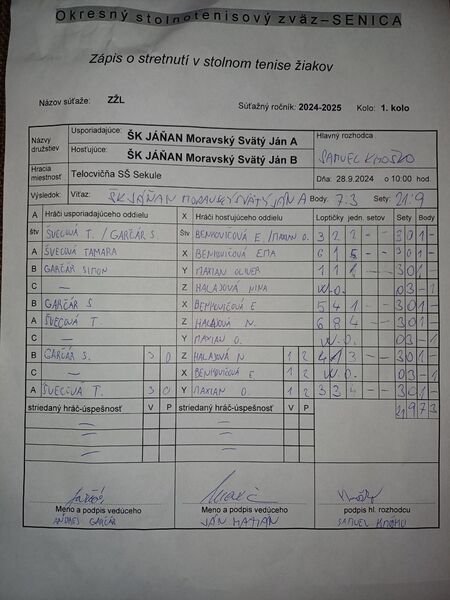 Okresný stolnotenisový zväz–SENICA
Zápis o stretnutí v stolnom tenise žiakov
Názov súťaže: ZŽL Súťažný ročník: 2024-2025 Kolo: 1. kolo
Názvy družstiev Usporiadajúce: ŠK JÁŇAN Moravský Svätý Ján A Hlavný rozhodca
Hosťujúce: ŠK JÁŇAN Moravský Svätý Ján B SAMUEL
Hracia miestnosť Telocvičňa SŠ Sekule Dňa: 28.9.2024 o 10:00 hod.
Výsledok: Víťaz: ŠK JÁŇAN MORAVSKÝ SVÄTÝ JÁN A Body: 7:3 Sety: 21:9
A Hráči usporiadajúceho oddielu X Hráči hosťujúceho oddielu Loptičky jedn. setov Sety Body
štv ŠVECOVÁ T. / GARČÁR S Štv BENKOVIČOVÁ E / MAXIAN O. 3 2 2 - - 3 0 1 -
A ŠVECOVÁ TAMARA X BENKOVIČOVÁ EMA 6 1 5 - - 3 0 1 -
B GARČÁR SIMON Y MAXIAN OLIVER 1 1 1 - - 3 0 1 -
C — Z HALAJOVÁ NINA W.O. 0 3 - 1
B GARČÁR S X BENKOVIČOVÁ E 5 4 1 - - 3 0 1 -
A ŠVECOVÁ T. Z HALAJOVÁ N. 6 8 4 - - 3 0 1 -
C — Y MAXIAN O. W.O. 0 3 - 1
B GARČÁR S. 3 0 Z HALAJOVÁ N 1 2 4 1 3 - - 3 0 1 -
C — X BENKOVIČOVÁ E 1 2 W.O. 0 3 - 1
A ŠVECOVÁ T. 3 0 Y MAXIAN O. 1 2 3 3 4 - - 3 0 1 -
striedaný hráč-úspešnosť V P striedaný hráč-úspešnosť V P 21 9 7 3
Meno a podpis vedúceho Meno a podpis vedúceho podpis hl. rozhodcu
GARČÁR JÁN MAXIAN SAMUEL